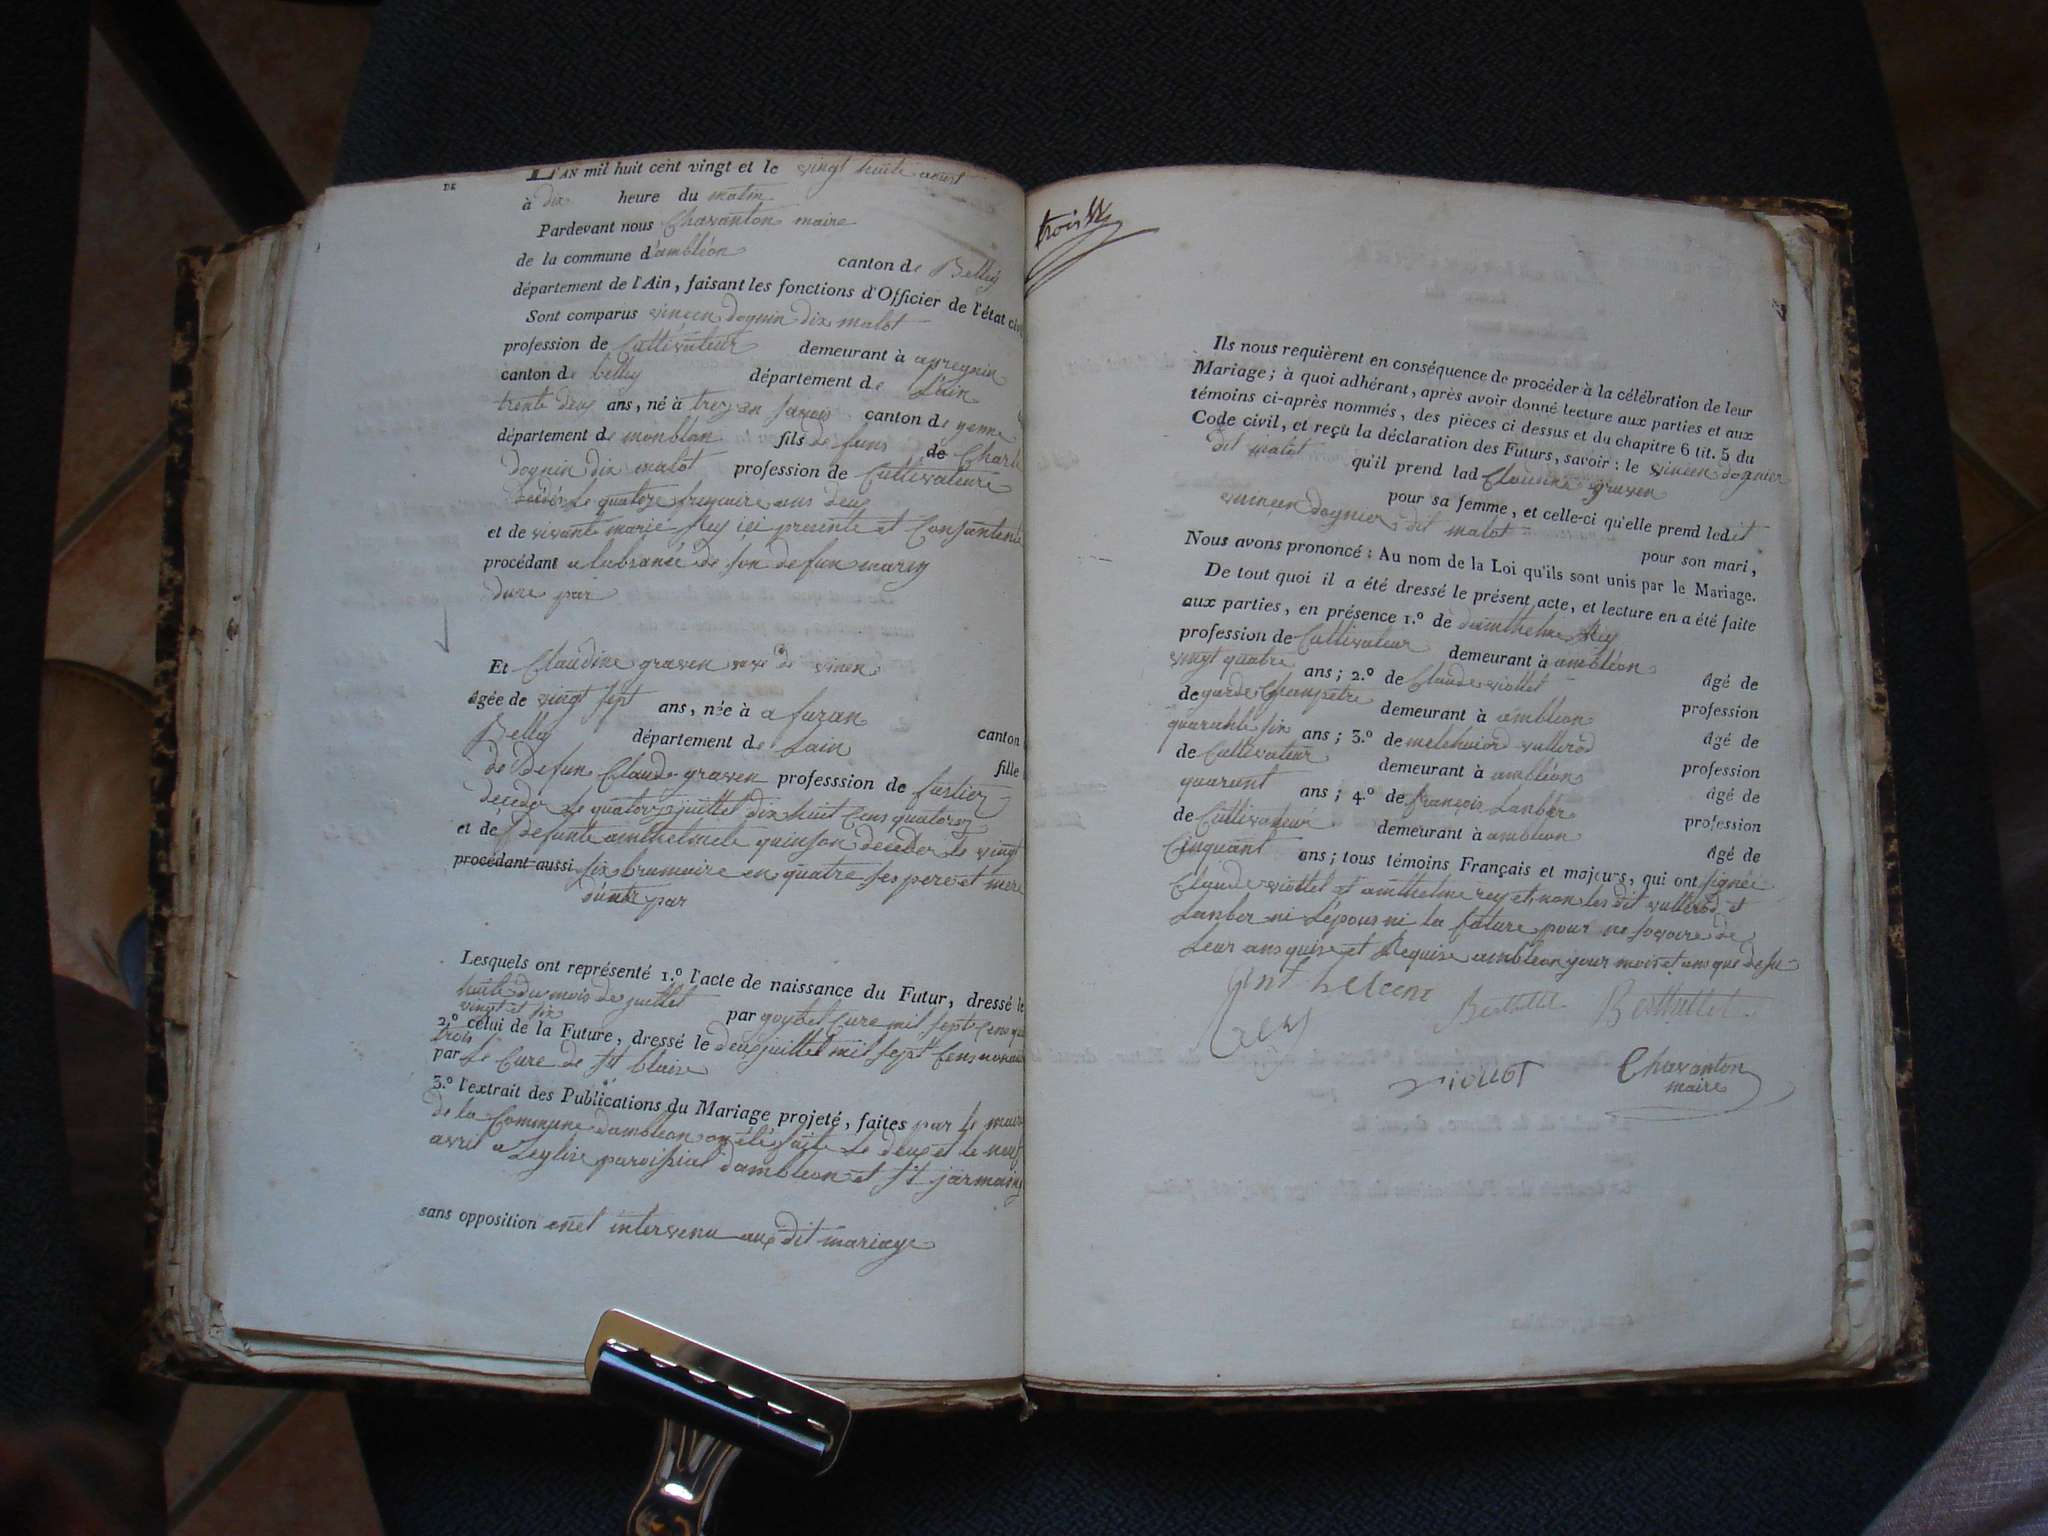 DE
L'AN mil huit cent vingt et le vingt huite aoust
à dix heure du matin
Pardevant nous Chavanton maire
de la commune d'ambléon canton de Belley
département de l'Ain, faisant les fonctions d'Officier de l'état civ
Sont comparus vincen dognin dix malot
profession de Cultivateur demeurant à apregnin
canton de belley département de Lain
trente deux ans, né à canton de yenne
département de monblan fils de funs de Charle
dognin dix malot profession de Cultivateure
deceder le quatorze frimaire ans deux
et de vivante marie Rey ici presente et Consantente
procédant a labsance de son defun marey
dune par
Et Claudine graven veve de vinen
âgée de vingt sept ans, née à a furan
Belley département de Lain canton
fille
de Defun Claude graven professsion de
deceder le quatorze juillet dix huit Cens quatorze
et de defunte anthelmete quinson deceder le vingt
procédant aussi six brumaire en quatre ses pere et mere
dautre par
Lesquels ont représenté 1.º l'acte de naissance du Futur, dressé le
huite du mois de juillet par goybet Cure mil sept Cens qua
vingt et six
2.º celui de la Future, dressé le deux juillet mil sept Cens nonante
trois
par Le Cure de st blaise
3.º l'extrait des Publications du Mariage projeté, faites par le maire
de la Commune dambleon on été faite le deux et le neuf
avril a Leglise paroissial dambleon et st jarmains
sans opposition enet intervenu aux dit mariage
trois
Ils nous requièrent en conséquence de procéder à la célébration de leur
Mariage; à quoi adhérant, après avoir donné lecture aux parties et aux
témoins ci-après nommés, des pièces ci dessus et du chapitre 6 tit. 5 du
Code civil, et reçu la déclaration des Futurs, savoir: le vincen dognier
dit malot qu'il prend lad Claudine graven
pour sa femme, et celle-ci qu'elle prend ledit
vincen dognier dit malot pour son mari,
Nous avons prononcé: Au nom de la Loi qu'ils sont unis par le Mariage.
De tout quoi il a été dressé le présent acte, et lecture en a été faite
aux parties, en présence 1.º de anthelme Rey
profession de Cultivateur demeurant à ambléon âgé de
vingt quatre ans; 2.º de Claude viollet profession
de garde Champetre demeurant à ambleon âgé de
quarante six ans; 3.º de melchiord vullerod profession
de Cultivateur demeurant à ambléon âgé de
quarant ans; 4.º de françois Lanber profession
de Cultivateur demeurant à ambleon âgé de
Cinquant ans; tous témoins Français et majeurs, qui ont signée
Claude viollet et anthelme rey et non les dit vullerod et
Lanber ni L'épous ni la future pour ne savoire de
Leur ans quise et Requise ambleon jour mois et ans que desu
ant helme
Berthelet Berthullet
rey
viollet
Chavanton
maire